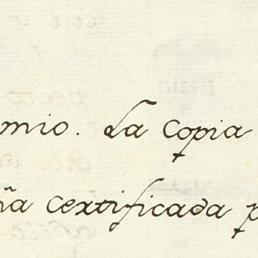 mio. La Copia
ña certificada p